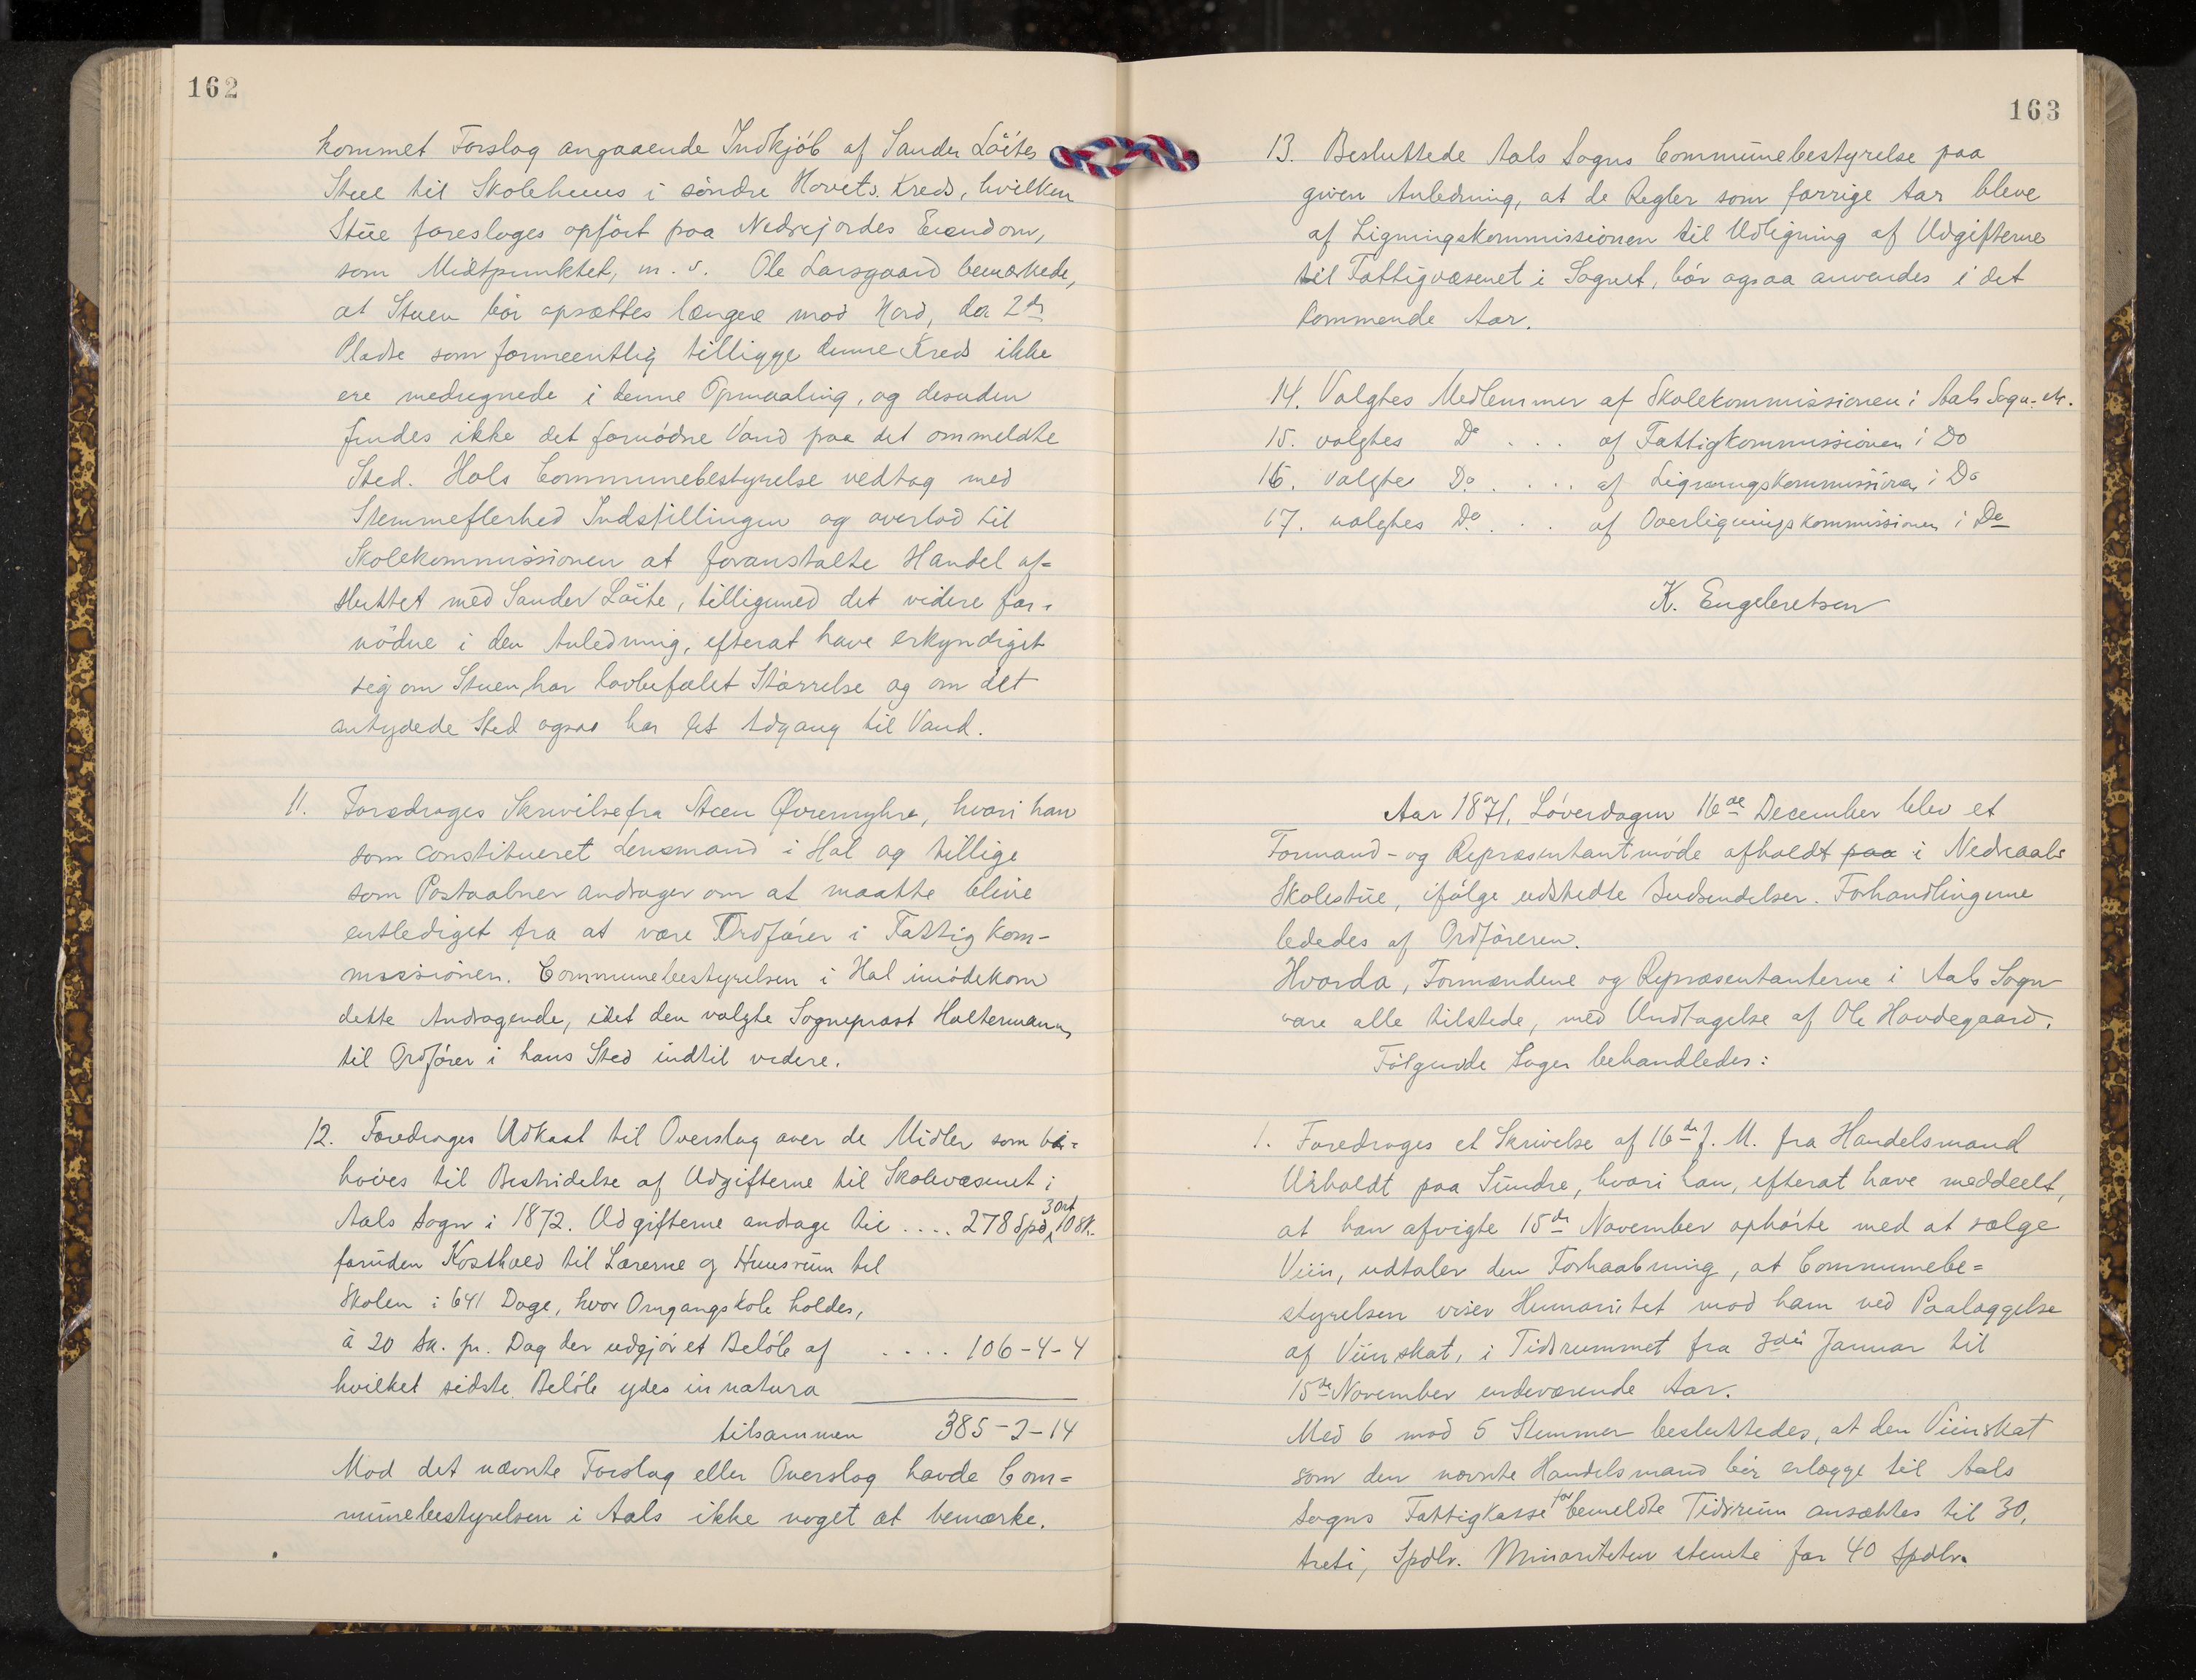 162
kommet Forslag angaaende Indkjöb af Sander Löites
Stue til Skolehuus i söndre Hovets Kreds, hvilken
Stue foreslages opfört paa Nedrejordes Eiendom,
som Midtpunktet, m. v. Ole Larsgaard bemærkede,
at Stuen bör opsættes længere mod Nord, da 2de
Pladse som formeentlig tilligge denne Kreds ikke
ere medregnede i denne Opmaaling, og desuden
findes ikke det fornödne Vand paa det ommeldte
Sted. Hols Communebestyrelse vedtog med
Stemmeflerhed Indstillingen og overlod til
Skolekommissionen at foranstalte Handel af=
sluttet med Sander Löite, tilligemed det videre for-
nödne i den Anledning, efterat have erkyndiget
sig om Stuen har lovbefalet Störrelse og om det
antydede Sted ogsaa har let Adgang til Vand.
11. Foredroges Skrivelse fra Steen Øvremyhre, hvori han
som constitueret Lensmand i Hol og tillige
som Postaabner andrager om at maatte blive
entlediget fra at være Ordförer i Fattigkom-
missionen. Communebestyrelsen i Hol imödekom
dette Andragende, idet den valgte Sogneprast Holtermann
til Ordförer i hans Sted indtil videre.
12. Foredroges Udkast til Overslag over de Midler som be=
höves til Bestridelse af Udgifterne til Skolevæsenet i
Aals Sogn i 1872. Udgifterne andrage til .... 278 Spd, 3 Ort 10 sk.
foruden Kosthold til Lærerne og Huusrum til
Skolen i 641 Dage, hvor Omgangskole holdes,
à 20 sk. pr. Dag der udgjör et Belöb af .... 106-4-4
hvilket sidste Belöb ydes in natura
tilsammen 385-2-14
Mod det nævnte Forslag eller Overslag havde Com=
munebestyrelsen i Aals ikke noget at bemærke.
163
13. Besluttede Aals Sogns Communebestyrelse paa
given Anledning, at de Regler som forrige Aar bleve
af Ligningskommissionen til Udligning af Udgifterne
til Fattigvæsenet i Sognet, bör ogsaa anvendes i det
kommende Aar.
14. Valgtes Medlemmer af Skolekommissionen i Aals Sogn. etc.
15. valgtes Do . . . af Fattigkommissionen i Do
16. valgtes Do . . . . af Ligningskommission i Do
17. valgtes Do . . . af Overligningskommissionen i Do
K. Engebretsen
Aar 1871, Löverdagen 16de December blev et
Formand- og Repræsentantmöde afholdt paa i Nedreaals
Skolestue, ifölge udstedte Budsendelser. Forhandlingerne
lededes af Ordföreren.
Hvorda, Formændene og Repræsentanterne i Aals Sogn
vare alle tilstede, med Undtagelse af Ole Hovdegaard.
Fölgende Sager behandledes:
1. Foredroges et Skrivelse af 16de f. M. fra Handelsmand
Urholdt paa Sundre, hvori han, efterat have meddeelt,
at han afvigte 15de November ophörte med at sælge
Viin, udtaler den Forhaabning, at Communebe=
styrelsen viser Humanitet mod ham ved Paalæggelse
af Viinskat, i Tidsrummet fra 3die Januar til
15de November endeværende Aar.
Med 6 mod 5 Stemmer besluttedes, at den Viinskat
som den nævnte Handelsmand bör erlægge til Aals
Sogns Fattigkasse for bemeldte Tidsrum ansættes til 30,
treti, Spdlr. Minoriteten stemte for 40 Spdlr.